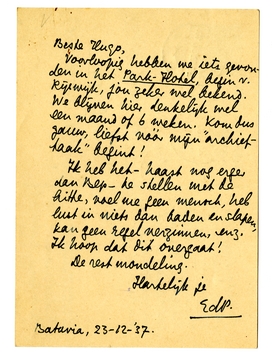 Beste Hugo,
Voorloopig hebben we iets gevon-
den in het Park-Hotel, begin v.
Rijswijk, jou zeker wel bekend.
We blijven hier denkelijk wel
een maand of 6 weken. Kom dus
gauw, liefst vóór mijn "archief-
taak" begint!
Ik heb het - haast nog erger
dan Bep - te stellen met de
hitte, voel me geen mensch, heb
lust in niets dan baden en slapen,
kan geen regel verzinnen, enz.
Ik hoop dat dit overgaat!
De rest mondeling.
Hartelijk je
EdP.
Batavia, 23-12-'37.